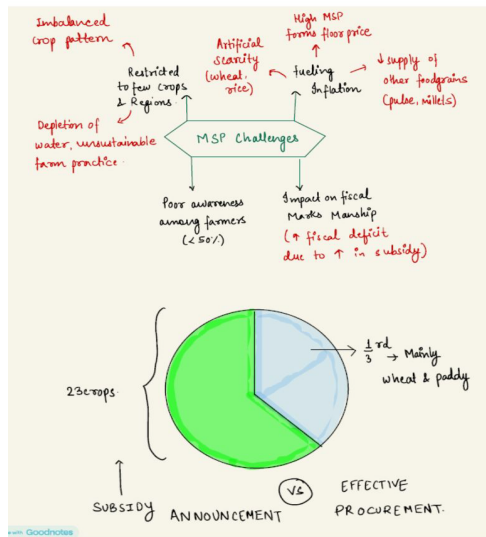 Imbalanced
crop pattern
Restricted
to few crops
& Regions.
Depletion of
water, unsustainable
farm practice.
High MSP
forms floor price
Artificial
scarcity
(wheat,
rice)
fueling
Inflation
↓ supply of
other foodgrains
(pulse, millets)
MSP Challenges
Poor awareness
among farmers
(<50%)
Impact on fiscal
Marks Manship
(↑ fiscal deficit
due to ↑ in subsidy)
23 crops.
1/3 rd → Mainly
wheat & paddy
SUBSIDY ANNOUNCEMENT
VS
EFFECTIVE
PROCUREMENT.
with Goodnotes